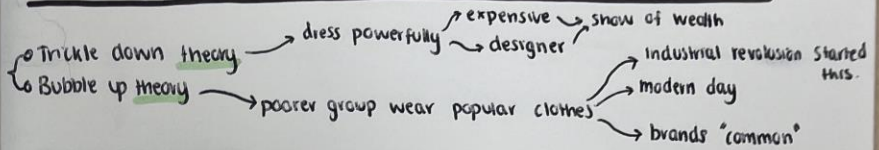 Trickle down theory → dress powerfully → expensive → show of wealth
→ designer
Bubble up theory → poorer group wear popular clothes → industrial revolusion started this.
→ modern day
→ brands "common"